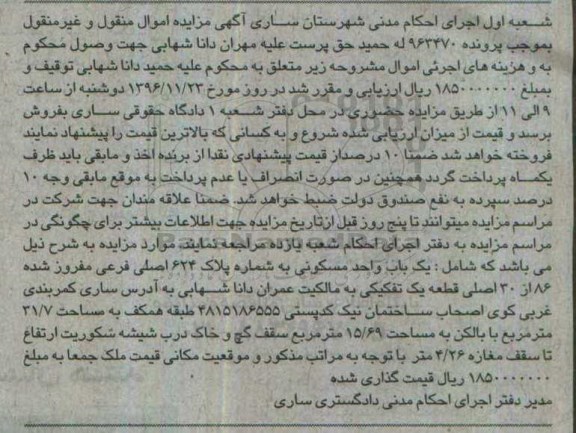 شعبه اول اجرای احکام مدنی شهرستان ساری آگهی مزایده اموال منقول و غیرمنقول
بموجب پرونده ۹۶۳۴۷۰ له حمید حق پرست علیه مهران دانا شهابی جهت وصول محکوم
به و هزینه های اجرئی اموال مشروحه زیر متعلق به محکوم علیه حمید دانا شهابی توقیف و
بمبلغ ۱۸۵۰۰۰۰۰۰۰ ریال ارزیابی و مقرر شد در روز مورخ ۱۳۹۶/۱۱/۲۳ دوشنبه از ساعت
۹ الی ۱۱ از طریق مزایده حضوری در محل دفتر شعبه ۱ دادگاه حقوقی ساری بفروش
برسد و قیمت از میزان ارزیابی شده شروع و به کسانی که بالاترین قیمت را پیشنهاد نمایند
فروخته خواهد شد ضمنا ۱۰ درصد از قیمت پیشنهادی نقدا از برنده اخذ و مابقی باید ظرف
یکماه پرداخت گردد همچنین در صورت انصراف یا عدم پرداخت به موقع مابقی وجه ۱۰
درصد سپرده به نفع صندوق دولت ضبط خواهد شد. ضمنا علاقه مندان جهت شرکت در
مراسم مزایده میتوانند تا پنج روز قبل از تاریخ مزایده جهت اطلاعات بیشتر برای چگونگی در
مراسم مزایده به دفتر اجرای احکام شعبه یازده مراجعه نمایند. موارد مزایده به شرح ذیل
می باشد که شامل : یک باب واحد مسکونی به شماره پلاک ۶۲۴ اصلی فرعی مفروز شده
۸۶ از ۳۰ اصلی قطعه یک تفکیکی به مالکیت عمران دانا شهابی به آدرس ساری کمربندی
غربی کوی اصحاب ساختمان نیک کدپستی ۴۸۱۵۱۸۶۵۵۵ طبقه همکف به مساحت ۳۱/۷
مترمربع با بالکن به مساحت ۱۵/۶۹ مترمربع سقف گچ و خاک درب شیشه سکوریت ارتفاع
تا سقف مغازه ۴/۲۶ متر با توجه به مراتب مذکور و موقعیت مکانی قیمت ملک جمعا به مبلغ
۱۸۵۰۰۰۰۰۰۰ ریال قیمت گذاری شده
مدیر دفتر اجرای احکام مدنی دادگستری ساری